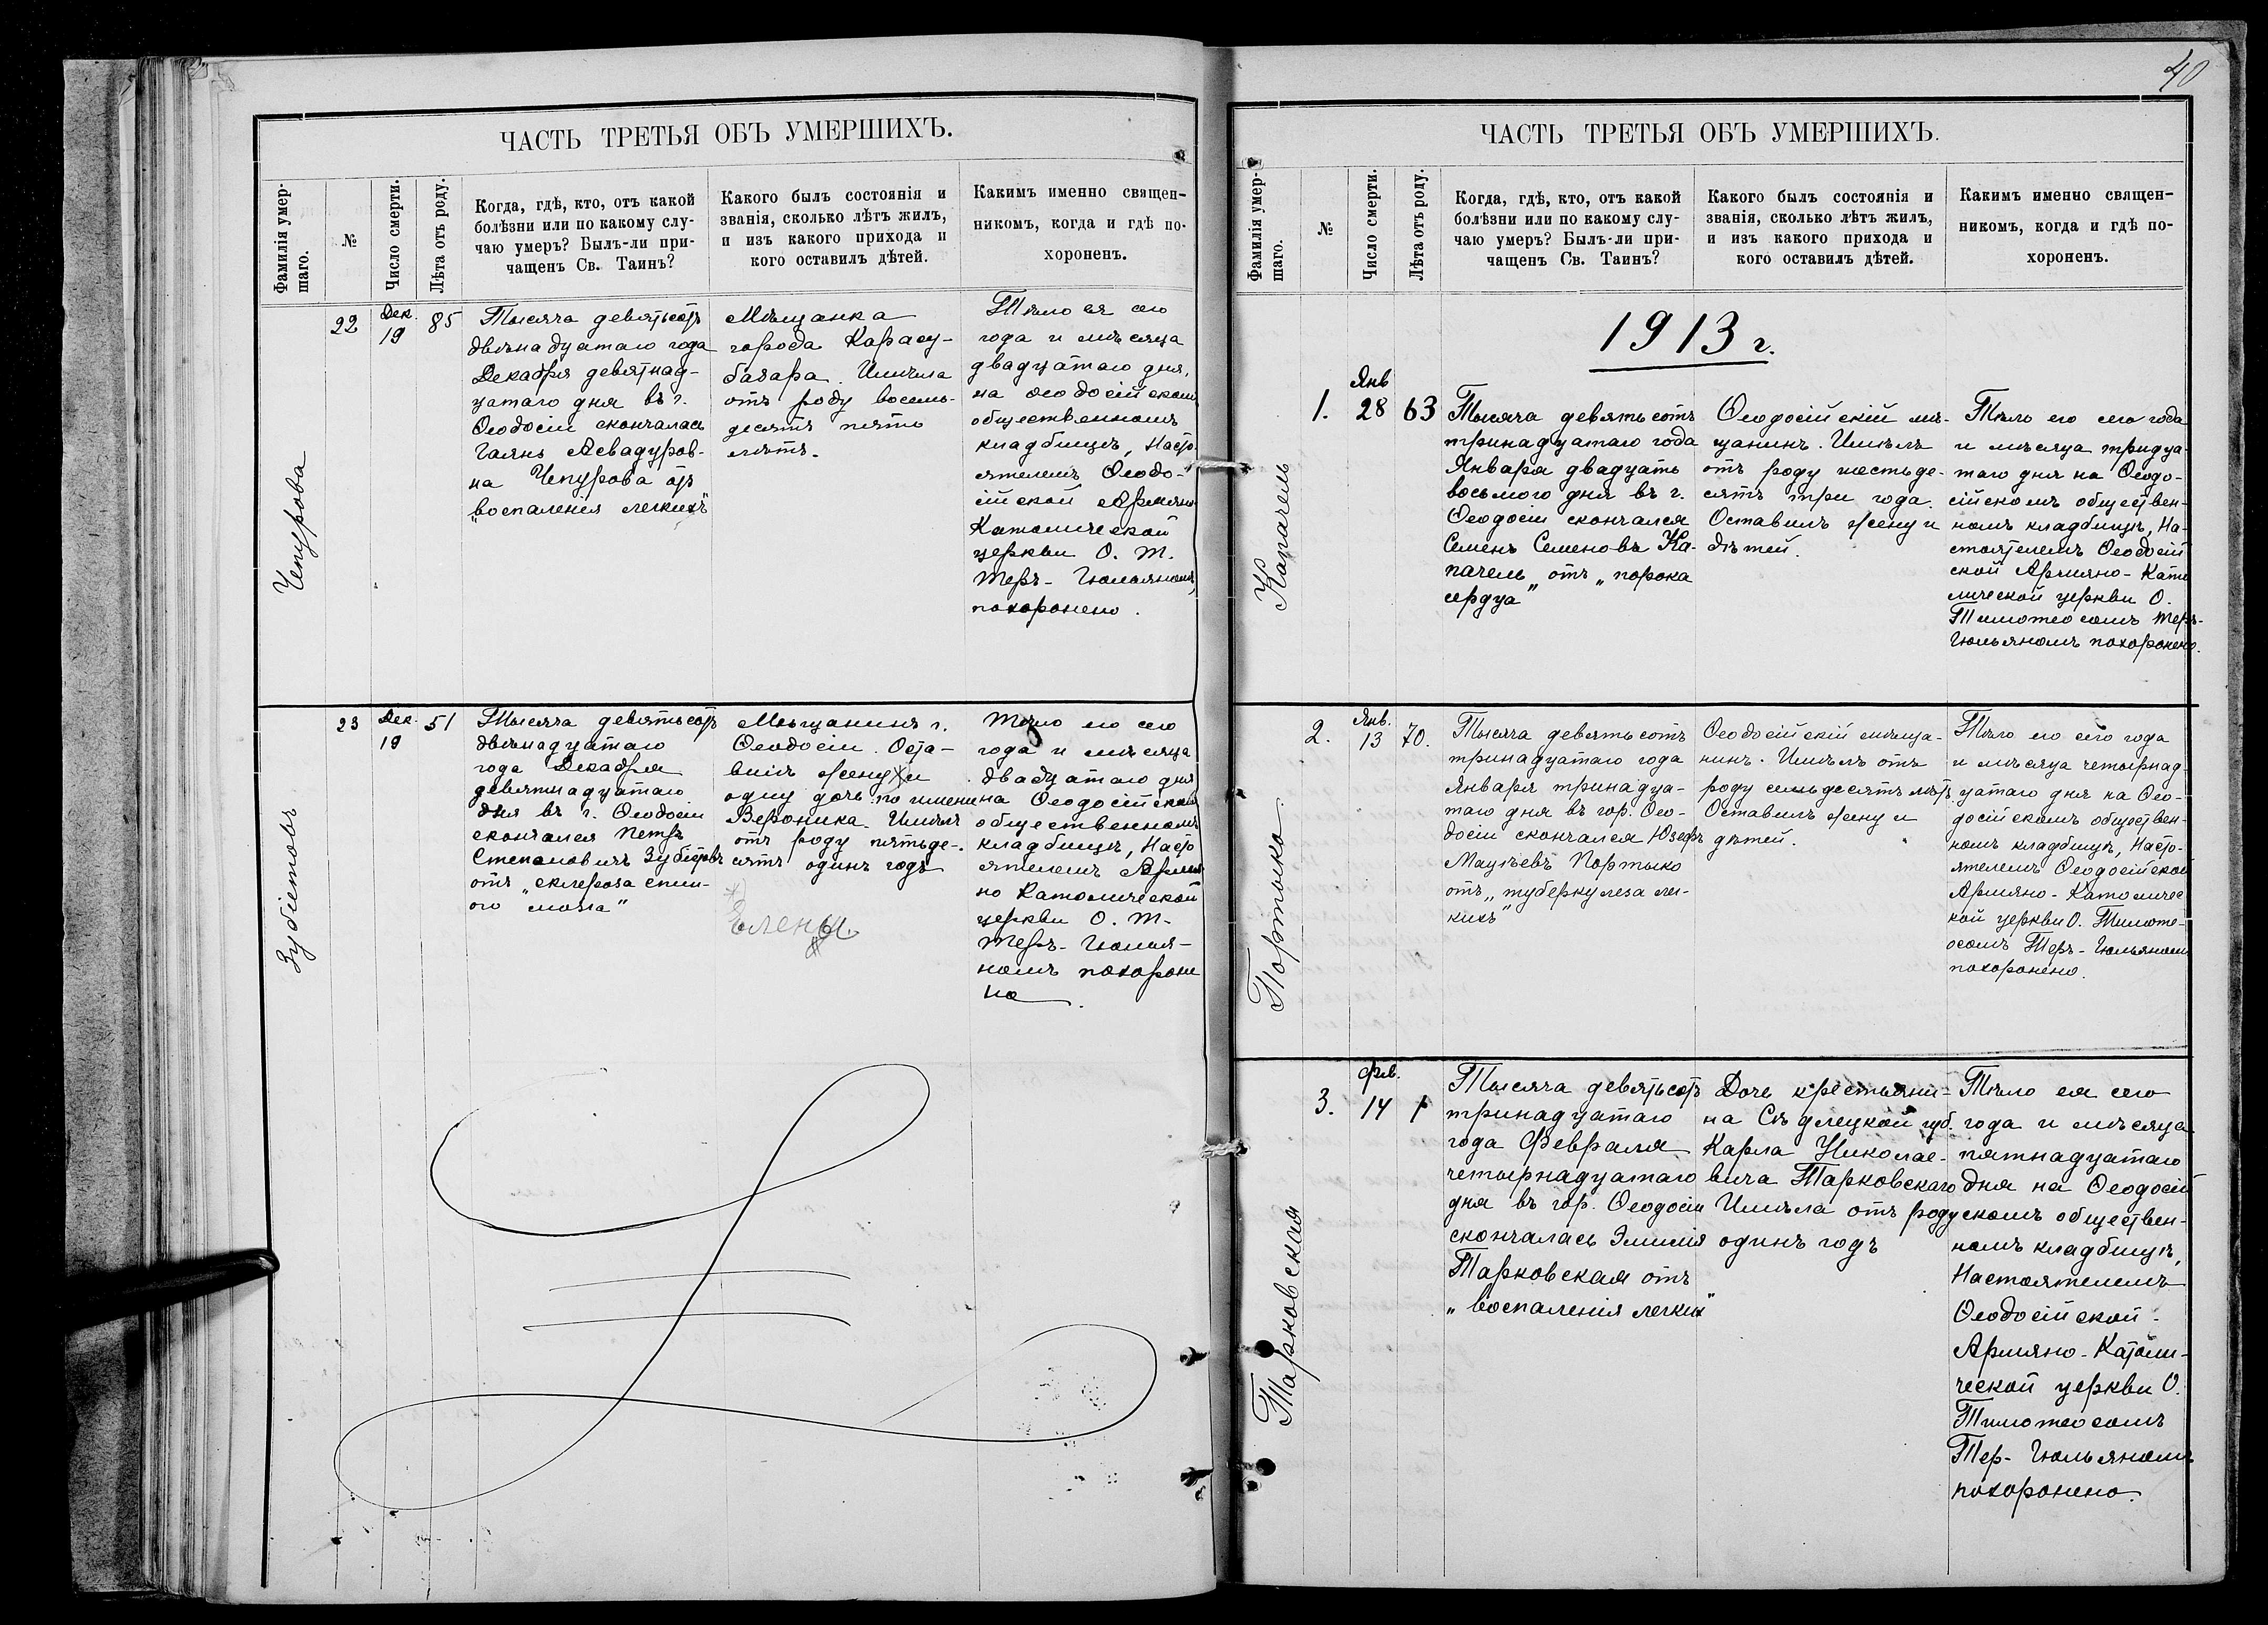 ЧАСТЬ ТРЕТЬЯ ОБЪ УМЕРШИХЪ.
Фамилія умер-
шаго.
№
Число смерти.
Лѣта отъ роду.
Когда, гдѣ, кто, отъ какой
болѣзни или по какому слу-
чаю умеръ? Былъ-ли при-
чащенъ Св. Таинъ?
Какого былъ состоянія и
званія, сколько лѣтъ жилъ,
и изъ какого прихода и
кого оставилъ дѣтей.
Какимъ именно священ-
никомъ, когда и гдѣ по-
хороненъ.
Чепурова
22
Дек.
19
85
Тысяча девятьсотъ
двѣнадцатаго года
Декабря девятнад-
цатаго дня въ г.
Ѳеодосіи скончалась
Гаянъ Асвадуров-
на Чепурова отъ
„воспаленія легкихъ"
Мѣщанка
города Карасу-
базара. Имѣла
отъ роду восемь-
десятъ пять
лѣтъ.
Тѣло ея сего
года и мѣсяца
двадцатаго дня,
на Ѳеодосійскомъ
общественномъ
кладбищѣ, Насто-
ятелемъ Ѳеодо-
сійской Армяно-
Католической
церкви О. Т.
Теръ-Гюльяномъ,
похоронено.
Зубіетовъ
23
Дек.
19
51
Тысяча девятьсотъ
двѣнадцатаго
года Декабря
девятнадцатаго
дня въ г. Ѳеодосіи
скончался Петръ
Степановичъ Зубіетовъ
отъ „склероза спин-
ого мозга"
Мѣщанинъ г.
Ѳеодосіи. Оста-
вилъ жену* и
одну дочь по имени
Вероника. Имѣлъ
отъ роду пятьде-
сятъ одинъ годъ
*)
Елены.
Тѣло его сего
года и мѣсяца
двадцатаго дня
на Ѳеодосійскомъ
общественномъ
кладбищѣ, Насто-
ятелемъ Армя-
но Католической
церкви О. Т.
Теръ-Гюлья-
номъ похороне
но.
40
ЧАСТЬ ТРЕТЬЯ ОБЪ УМЕРШИХЪ.
Фамилія умер-
шаго.
№
Число смерти.
Лѣта отъ роду.
Когда, гдѣ, кто, отъ какой
болѣзни или по какому слу-
чаю умеръ? Былъ-ли при-
чащенъ Св. Таинъ?
Какого былъ состоянія и
званія, сколько лѣтъ жилъ,
и изъ какого прихода и
кого оставилъ дѣтей.
Какимъ именно священ-
никомъ, когда и гдѣ по-
хороненъ.
1913 г.
Капачель
1.
Янв
28
63
Тысяча девятьсотъ
тринадцатаго года
Января двадцать
восьмого дня въ г.
Ѳеодосіи скончался
Семенъ Семеновъ Ка-
пачель отъ „порока
сердца"
Ѳеодосійскій мѣ-
щанинъ. Имѣлъ
отъ роду шестьде-
сятъ три года.
Оставилъ жену и
дѣтей.
Тѣло его сего года
и мѣсяца тридца-
таго дня на Ѳеодо-
сійскомъ обществен-
номъ кладбищѣ, На-
стоятелемъ Ѳеодосій
ской Армяно-Като
лической церкви О.
Тимотеосомъ Теръ-
Гюльяномъ похоронено.
Портыко
2.
Янв.
13
70.
Тысяча девятьсотъ
тринадцатаго года
Января тринадца-
таго дня въ гор. Ѳео-
досіи скончался Юзефъ
Мацѣевъ Портыко
отъ „туберкулеза лег-
кихъ"
Ѳеодосійскій мѣща-
нинъ. Имѣлъ отъ
роду семьдесятъ лѣтъ.
Оставилъ жену и
дѣтей.
Тѣло его сего года
и мѣсяца четырнад
цатаго дня на Ѳео-
досійскомъ обществен-
номъ кладбищѣ, Насто-
ятелемъ Ѳеодосійской
Армяно-Католичес
кой церкви О. Тимоте-
осомъ Теръ-Гюльяномъ
похоронено.
Тарковская
3.
Фев.
14
1
Тысяча девятьсотъ
тринадцатаго
года Февраля
четырнадцатаго
дня въ гор. Ѳеодосіи
скончалась Эмилія
Тарковская отъ
„воспаленія легкихъ"
Дочь крестьяни-
на Сѣдлецкой губ.
Карла Николае-
вича Тарковскаго
Имѣла отъ роду
одинъ годъ
Тѣло ея сего
года и мѣсяца
пятнадцатаго
дня на Ѳеодосій
скомъ обществен-
номъ кладбищѣ,
Настоятелемъ
Ѳеодосійской
Армяно-Католи-
ческой церкви О.
Тимотеосомъ
Тер-Гюльяномъ
похоронено.